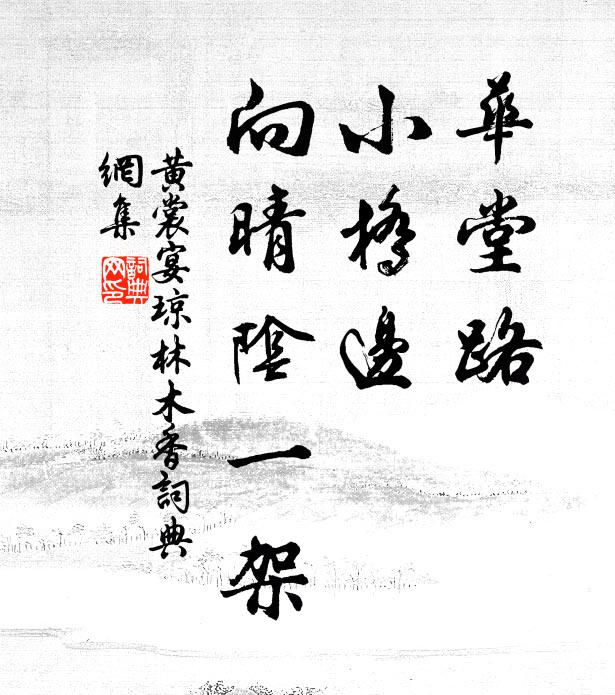 華堂路
小橋邊
向晴陰一架
黄裳宴琼林木香詞典
網集
詞典
网印